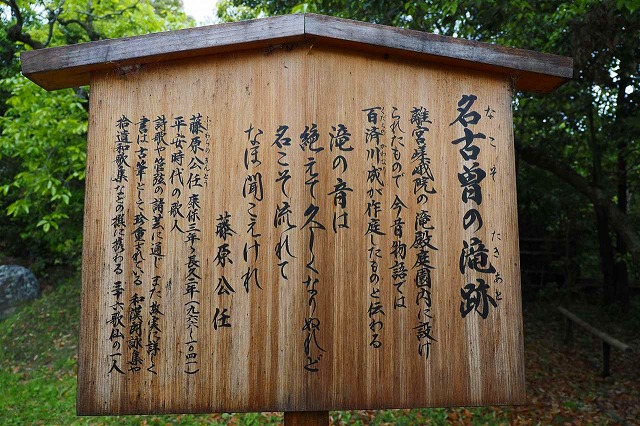 名古曽の滝跡
なこそ たきあと
離宮嵯峨院の滝殿庭園内に設け
られたもので今昔物語では
百済川成が作庭したものと伝わる
くだらの かわなり
滝の音は
絶えて久しくなりぬれど
名こそ流れて
なほ聞こえけれ
藤原公任
藤原公任 康保三年〜長久二年(九六六〜一〇四一)
ふじわらの きんとう
平安時代の歌人
詩歌や管弦の諸芸に通じ また故実に詳しく
書は古筆として珍重されている 和漢朗詠集や
拾遺和歌集などの撰に携わる 三十六歌仙の一人